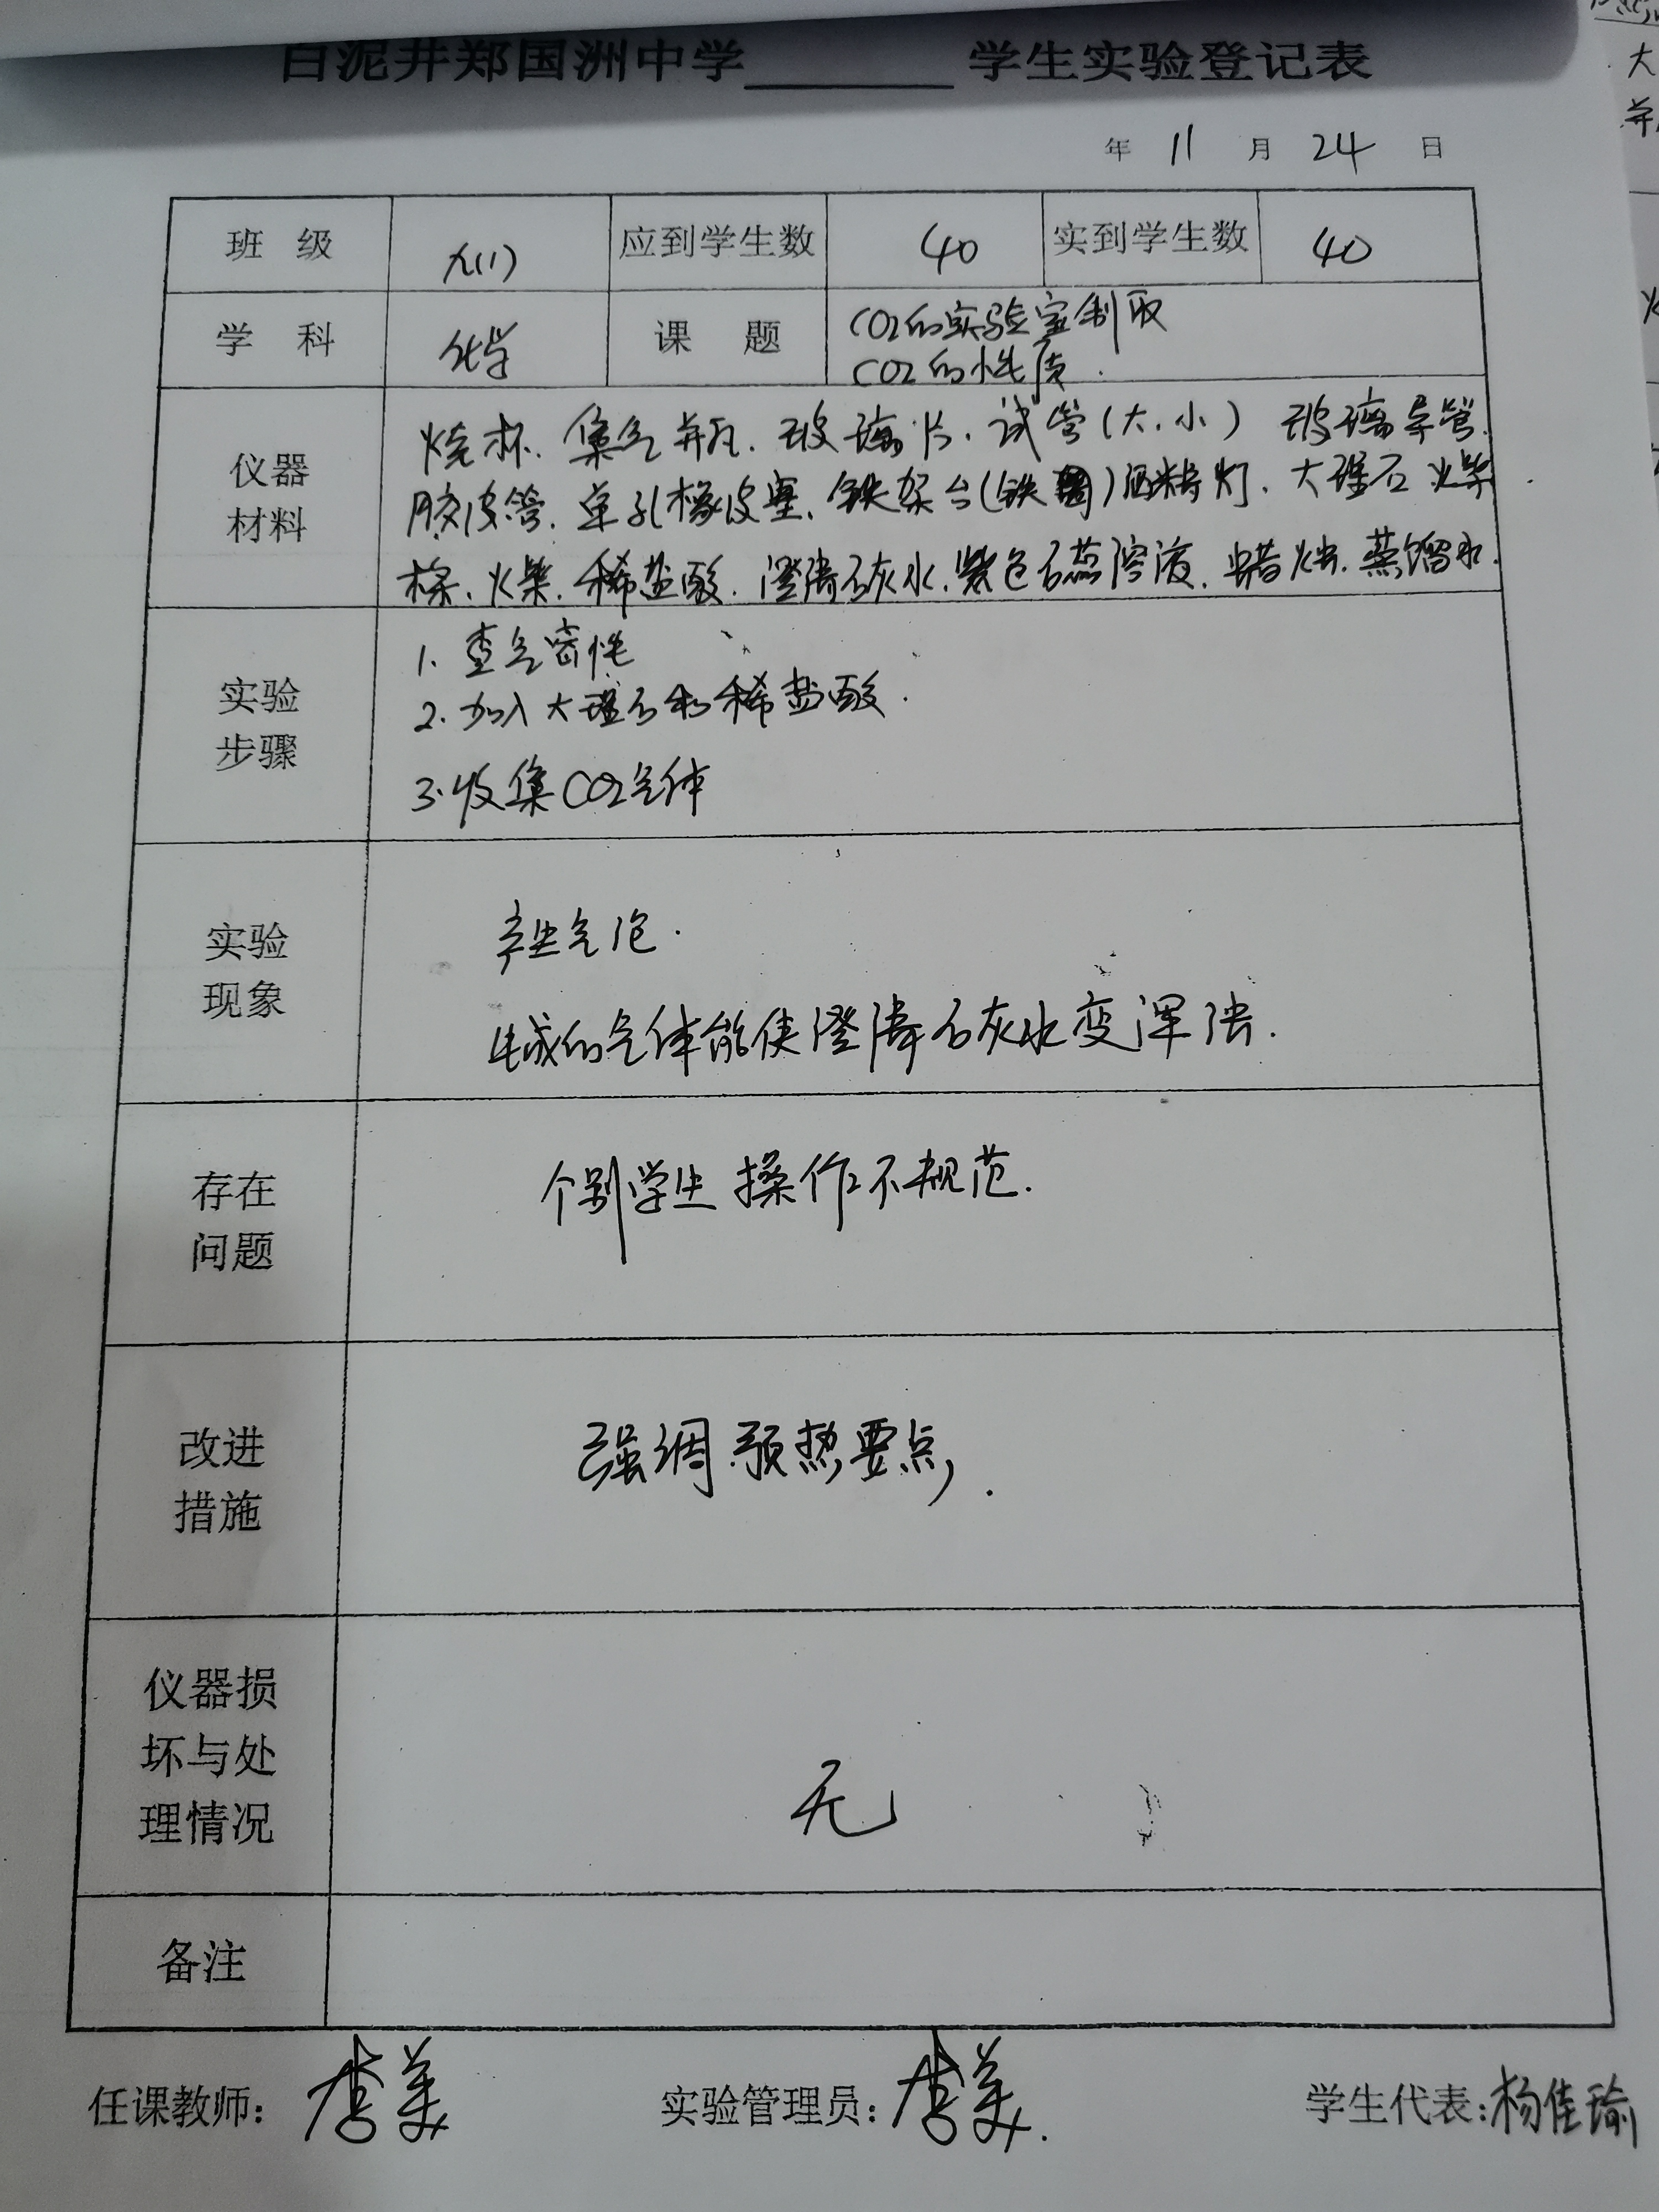 白泥井郑国洲中学______ 学生实验登记表
年 11 月 24 日
班 级 九(1) 应到学生数 40 实到学生数 40
学 科 化学 课 题 CO2的实验室制取
CO2的性质.
仪器材料
烧杯. 集气瓶. 玻璃片. 试管(大.小) 玻璃导管.
胶皮管. 单孔橡皮塞. 铁架台(铁圈)酒精灯. 大理石 火柴
梗. 火柴. 稀盐酸. 澄清石灰水. 紫色石蕊溶液. 蜡烛. 蒸馏水.
实验步骤
1. 查气密性
2. 加入大理石和稀盐酸.
3. 收集CO2气体
实验现象
产生气泡.
生成的气体能使澄清石灰水变浑浊.
存在问题
个别学生操作不规范.
改进措施
强调预热要点.
仪器损坏与处理情况
无
备注
任课教师: 李美 实验管理员: 李美. 学生代表: 杨佳瑜